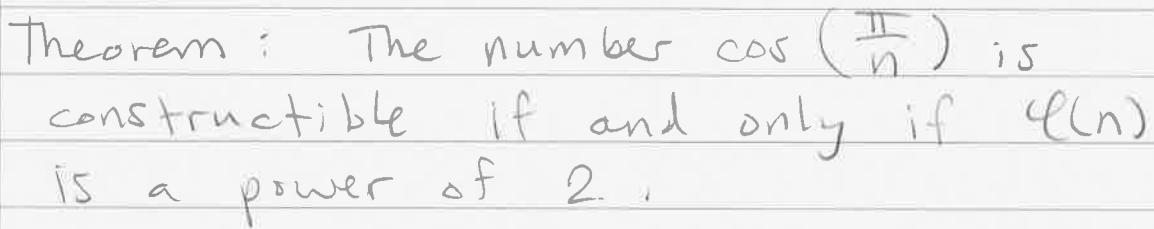 Theorem: The number cos (π/n) is
constructible if and only if φ(n)
is a power of 2.